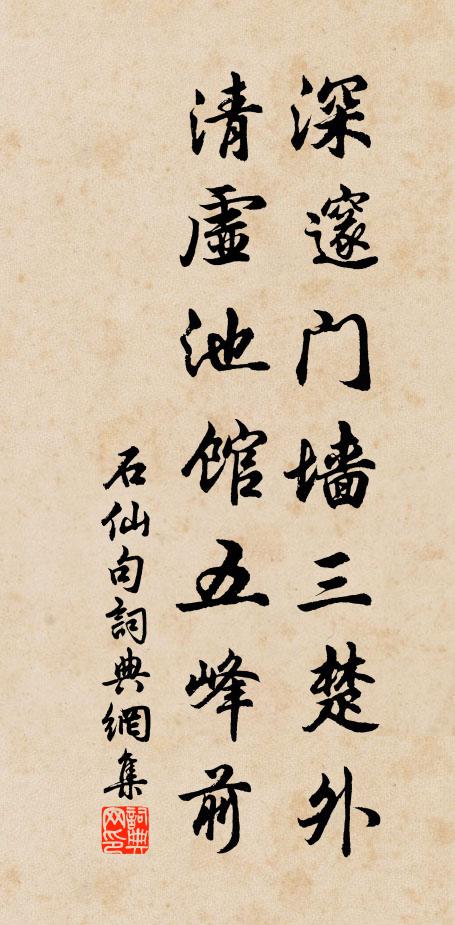 深邃门墙三楚外
清虚池馆五峰前
石仙句詞典網集
詞典网印